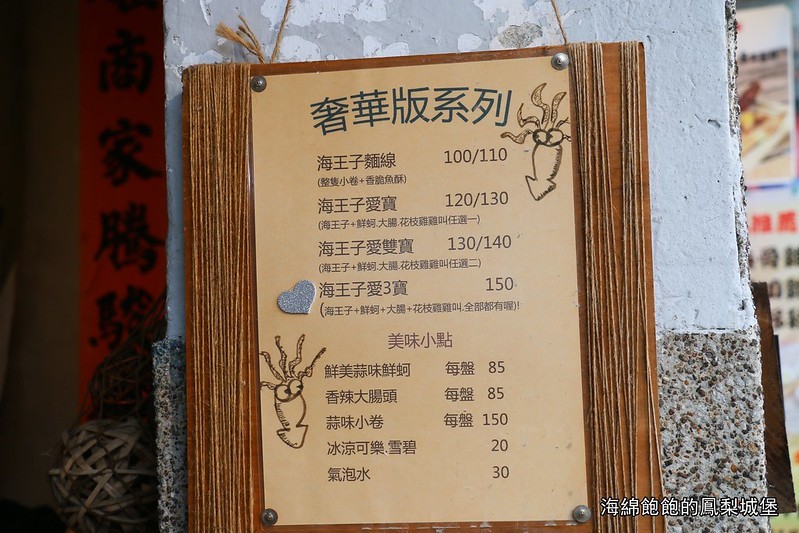 商家騰駿
奢華版系列
海王子麵線 100/110
(整隻小卷+香脆魚酥)
海王子愛寶 120/130
(海王子+鮮蚵.大腸.花枝雞雞叫任選一)
海王子愛雙寶 130/140
(海王子+鮮蚵.大腸.花枝雞雞叫任選二)
海王子愛3寶 150
(海王子+鮮蚵+大腸+花枝雞雞叫.全部都有喔)!
美味小點
鮮美蒜味鮮蚵 每盤 85
香辣大腸頭 每盤 85
蒜味小卷 每盤 150
冰涼可樂.雪碧 20
氣泡水 30
海綿飽飽的鳳梨城堡